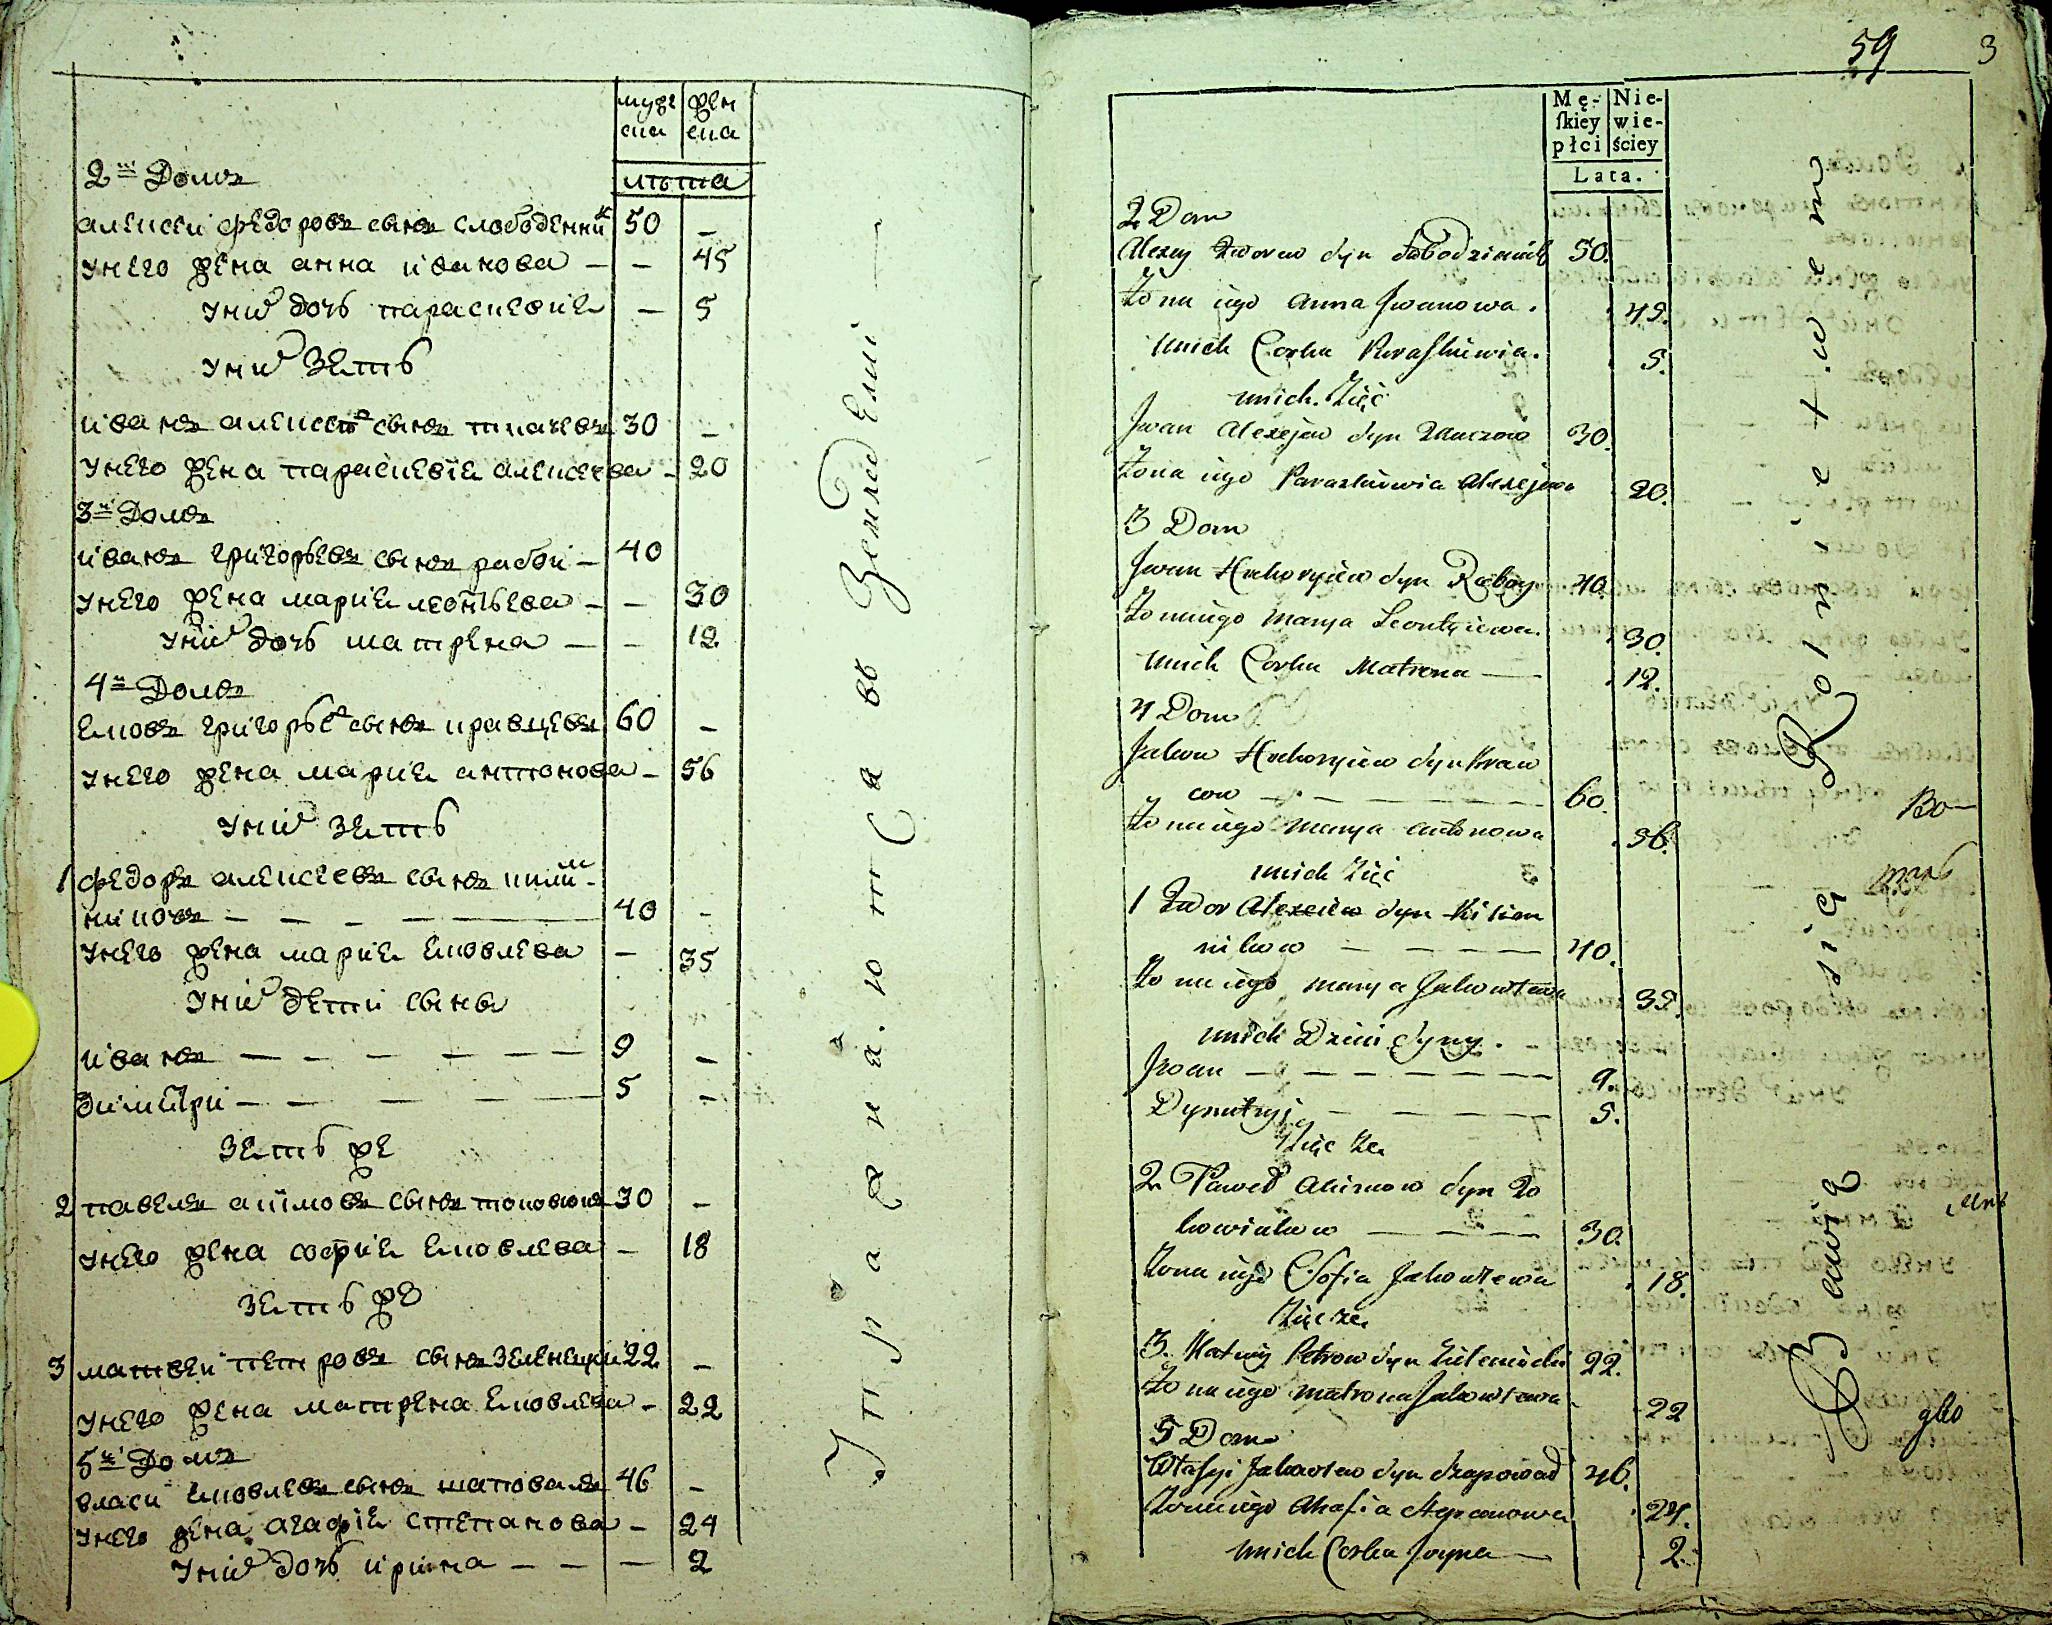 муже
ска
жен
ска
лѣта
2й Домъ
алексеи федоровъ сынъ слободенникъ 50 –
унего жена анна иванова – – 45
уних дочъ параскевиѧ – 5
уних зѧть
иванъ алексеевъ сынъ ткачевъ 30 –
унего жена параскевиѧ алексеева – 20
3й Домъ
иванъ григорьевъ сынъ рабои – 40
унего жена мариѧ леонтьева – – 30
уних дочъ матрѧна – – 12
4й Домъ
ѧковъ григорьевъ сынъ кравцевъ 60 –
унего жена мариѧ антонова – 56
уних зѧть
1 федоръ алексеевъ сынъ килим-
никовъ – – – – 40 –
унего жена мариѧ ѧковлева – 35
уних дети сынъ
иванъ – – – – – – 9 –
димитри – – – – – 5 –
зѧть же
2 павелъ акимовъ сынъ токовюкъ 30 –
унего жена софиѧ ѧковлева – 18
зѧть же
3 матвеи петровъ сынъ зеленецки 22 –
унего жена матрѧна ѧковлева – 22
5й Домъ
власи ѧковлевъ сынъ шаповалъ 46 –
унего жена агафиѧ степанова – 24
уних дочъ ирина – – – 2
Упражнѧютсѧ въ Земледелиі
59 3
Mę-
ſkiey
płci
Nie-
wie-
ściey
Lata.
2 Dom
Alexey Zwdorow Syn Słobodzianik 50.
Zona iego Anna Jwanowa. 45.
unich Corka Paraskiewia. 5.
unich Zięć
Jwan Alexejew Syn Tkaczow 30.
Zona iego Paraskiewia Alexejewa 20.
3 Dom
Jwan Hrehoryiew Syn Raboy 40.
Zona iego Marya Leontyiewa. 30.
unich Corka Matrona — 12.
4 Dom
Jakow Hrehoryiew Syn Kraw
cow — — — — — — 60.
Zona iego Marya Antonowa 56.
unich Zięć
1 Zwdor Alexeiew Syn Kilim
nikow — — — — 40.
Zona iego Marya Jakowlewa 35.
unich Dzieci Syny.
Jwan — — — — — — 9.
Dymitryj — — — — 5.
Zięć że
2. Paweł Akimow Syn To
kowiukow — — — — 30.
Zona iego Sofia Jakowlewa 18.
Zięć że
3. Matwiy Petrow Syn Zieleniecki 22.
Zona iego Matrona Jakowlewa 22
5 Dom
Własyi Jakowlew Syn Szapował 46.
Zona iego Ahafia Stepanowa 24.
unich Corka Jryna — 2.
Bawią się Rolnictwem